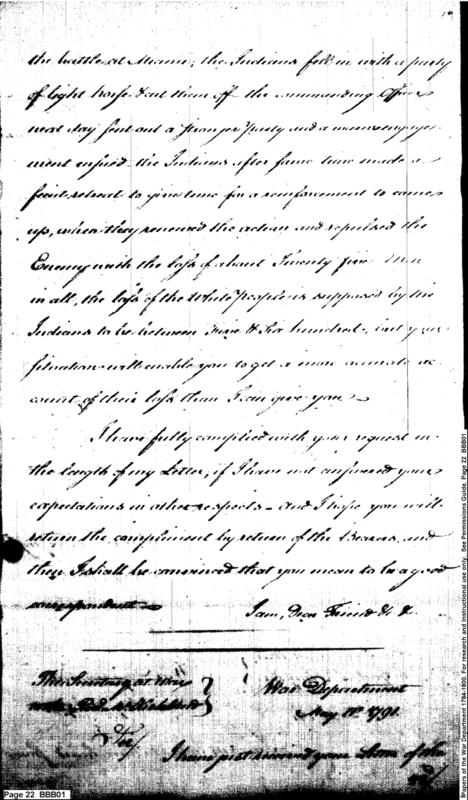 the battle at Miami; the Indians fell in with a party
of light horse & cut them off the commanding Officer
next day sent out a stronger Party and a warm engage-
ment ensued the Indians after some time made a
feint retreat to give time for a reinforcement to come
up, when they renewed the action and repulsed the
Enemy with the loss of about Twenty five Men
in all, the loss of the White people is supposed by the
Indians to be between & Six hundred, but your
situation will enable you to get a more accurate ac-
count of their loss than I can give you
I have fully complied with your request in
the length of my Letter, if I have not answered your
expectations in other respects — and I hope you will
return the complement by return of the Bearer, and
then I shall be convinced that you mean to be a good
correspondent —
I am, Dear Friend &c &c
The Secretary at War
War Department
May 1791
Sir/
I have just received your Letter of the
Page 22 BBB01
Papers of the War Department 1784-1800. For research and instructional use only. See Permissions Guide. Page 22 BBB01